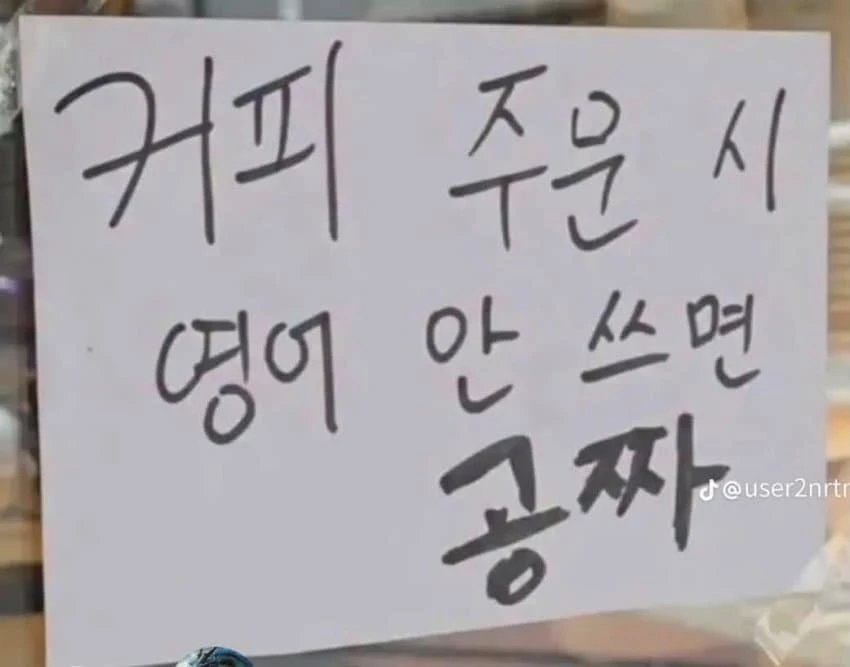 커피 주문 시
영어 안 쓰면
공짜
@user2nrtr